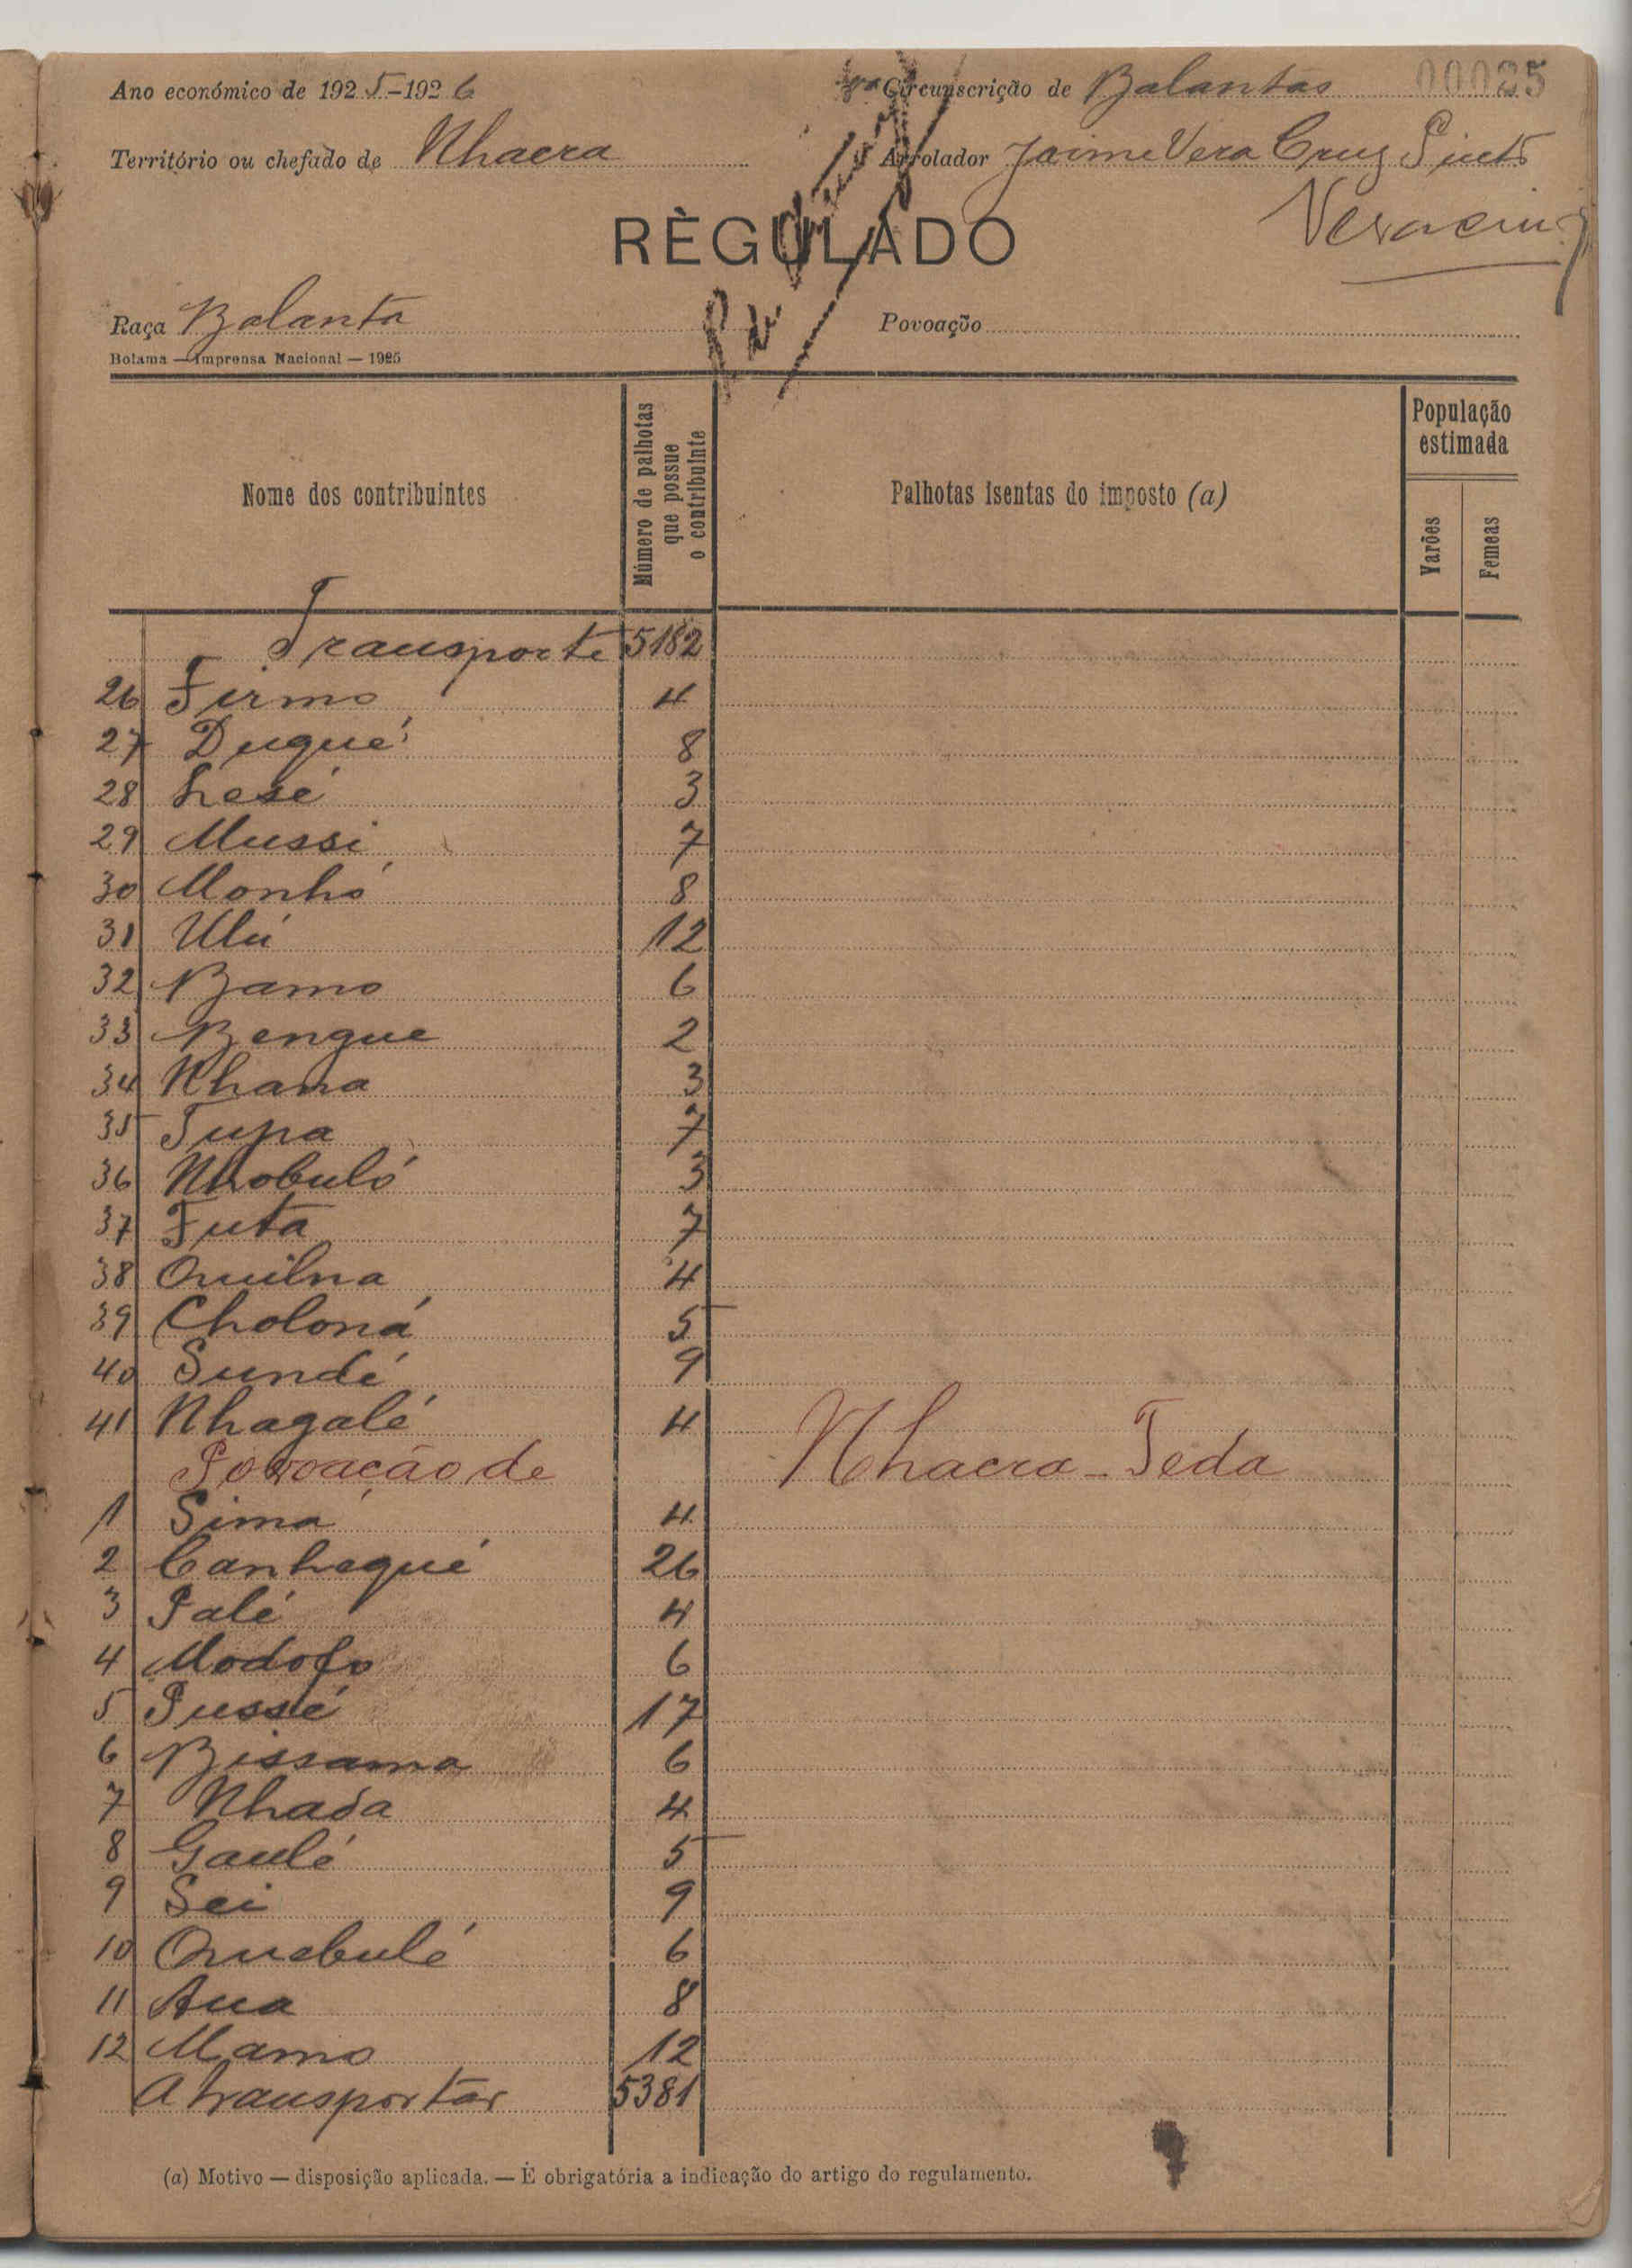 Ano económico de 1925-1926
Circunscrição de Balantas 00025
Território ou chefado de Nhacra
Arrolador Jaime Vera Cruz Pinto
Veracruz
RÈGULADO
Raça Balanta
Povoação
Bolama — Imprensa Nacional — 1925
Nome dos contribuintes
Número de palhotas que possue o contribuinte
Palhotas isentas do imposto (a)
População estimada
Varões
Femeas
Transporte 5182
26 Firmo 4
27 Dugué 8
28 Lesé 3
29 Mussi 7
30 Monhó 8
31 Ulú 12
32 Bamo 6
33 Bengue 2
34 Nhana 3
35 Tupa 7
36 Nhobuló 3
37 Futa 7
38 Quilna 4
39 Choloná 5
40 Sundé 9
41 Nhagalé 4
Povoação de Nhacra - Teda
1 Sima 4
2 Canhequé 26
3 Palé 4
4 Modofo 6
5 Pussé 17
6 Bissama 6
7 Nhada 4
8 Gaulé 5
9 Sei 9
10 Quebulé 6
11 Aua 8
12 Mamo 12
A transportar 5381
(a) Motivo — disposição aplicada. — É obrigatória a indicação do artigo do regulamento.